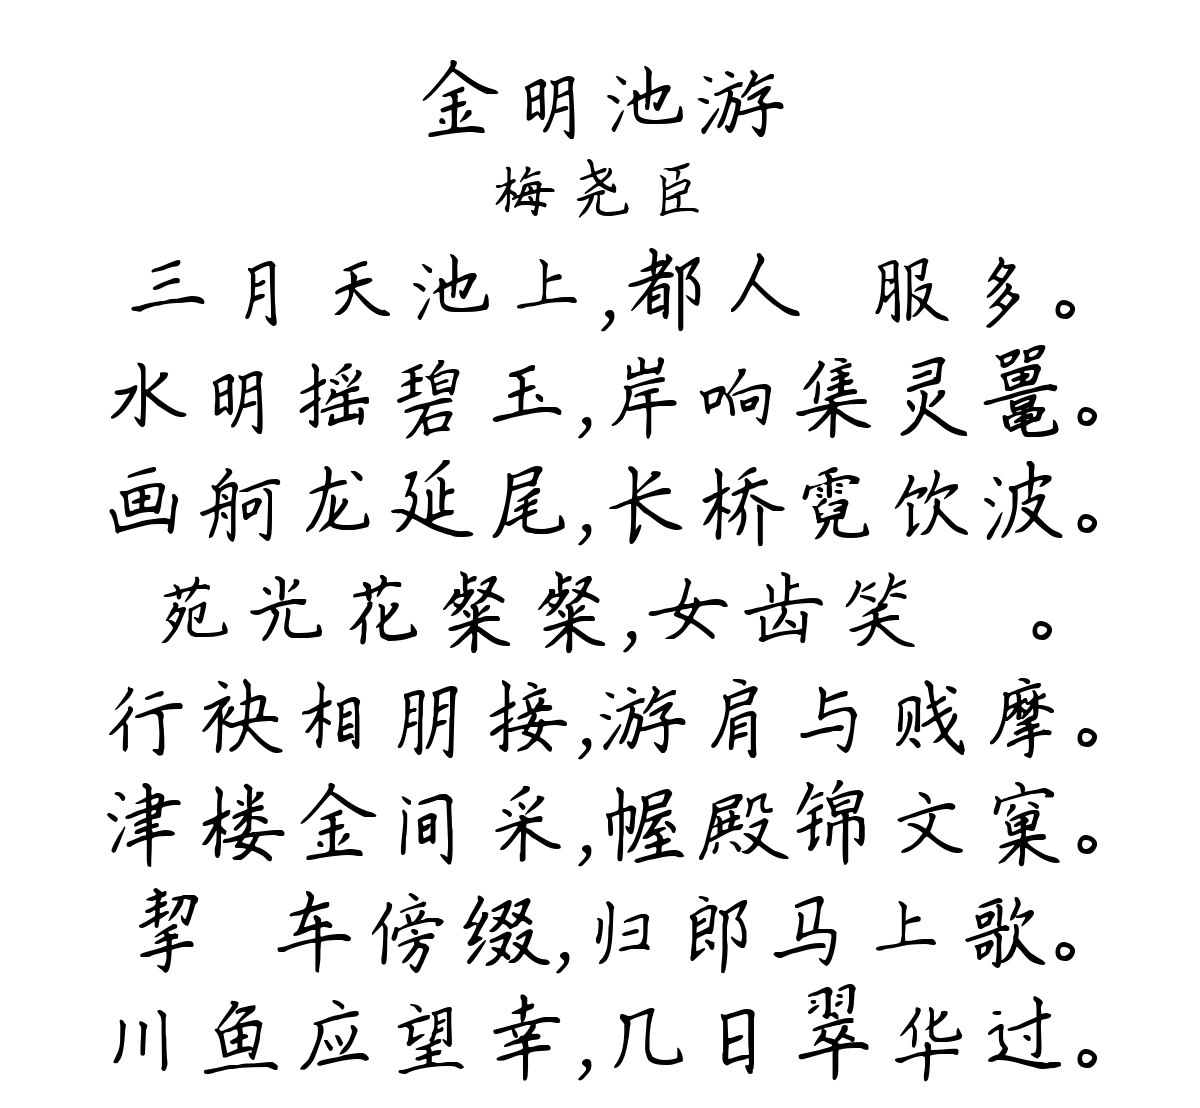 金明池游
梅尧臣
三月天池上,都人 服多。
水明摇碧玉,岸响集灵鼍。
画舸龙延尾,长桥霓饮波。
苑光花粲粲,女齿笑 。
行袂相朋接,游肩与贱摩。
津楼金间采,幄殿锦文窠。
挈 车傍缀,归郎马上歌。
川鱼应望幸,几日翠华过。